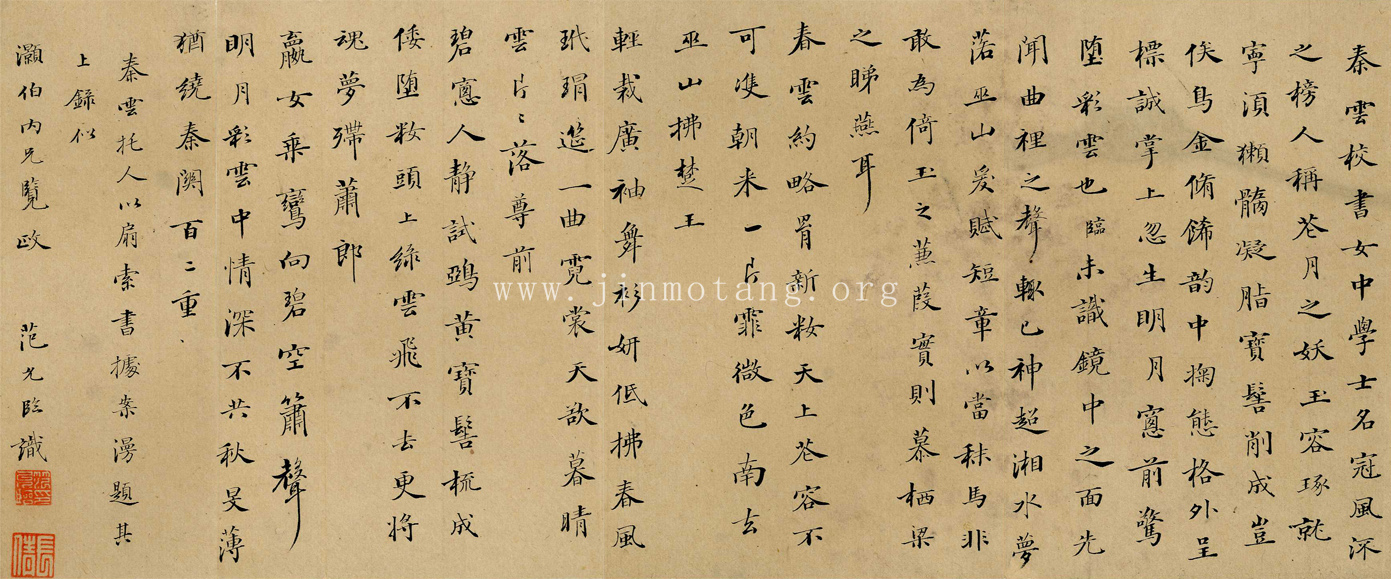 秦雲校書女中學士名冠風流
之榜人稱花月之妖玉容琢就
寧須獺髓凝脂寶髻削成豈
俟鳥金脩餙韵中掬態格外呈
標誠掌上忽生明月窻前驚
墮彩雲也臨未識鏡中之面先
聞曲裡之聲輒已神超湘水夢
落巫山爰賦短章以當秣馬非
敢為倚玉之蒹葭實則慕栖梁
之睇燕耳
春雲約略買新粧天上花容不
可雙朝來一片霏微色南去
巫山拂楚王
輕裁廣袖舞衫妍低拂春風
玳瑁筵一曲霓裳天欲暮晴
雲片〻落尊前
碧窻人靜試鵶黃寶髻梳成
倭墮粧頭上綠雲飛不去更將
魂夢殢蕭郎
嬴女乘鸞向碧空簫聲
明月彩雲中情深不共秋旻薄
猶繞秦關百二重
秦雲托人以扇索書據案漫題其
上錄似
灝伯內兄覽政 范允臨識
www.jinmotang.org